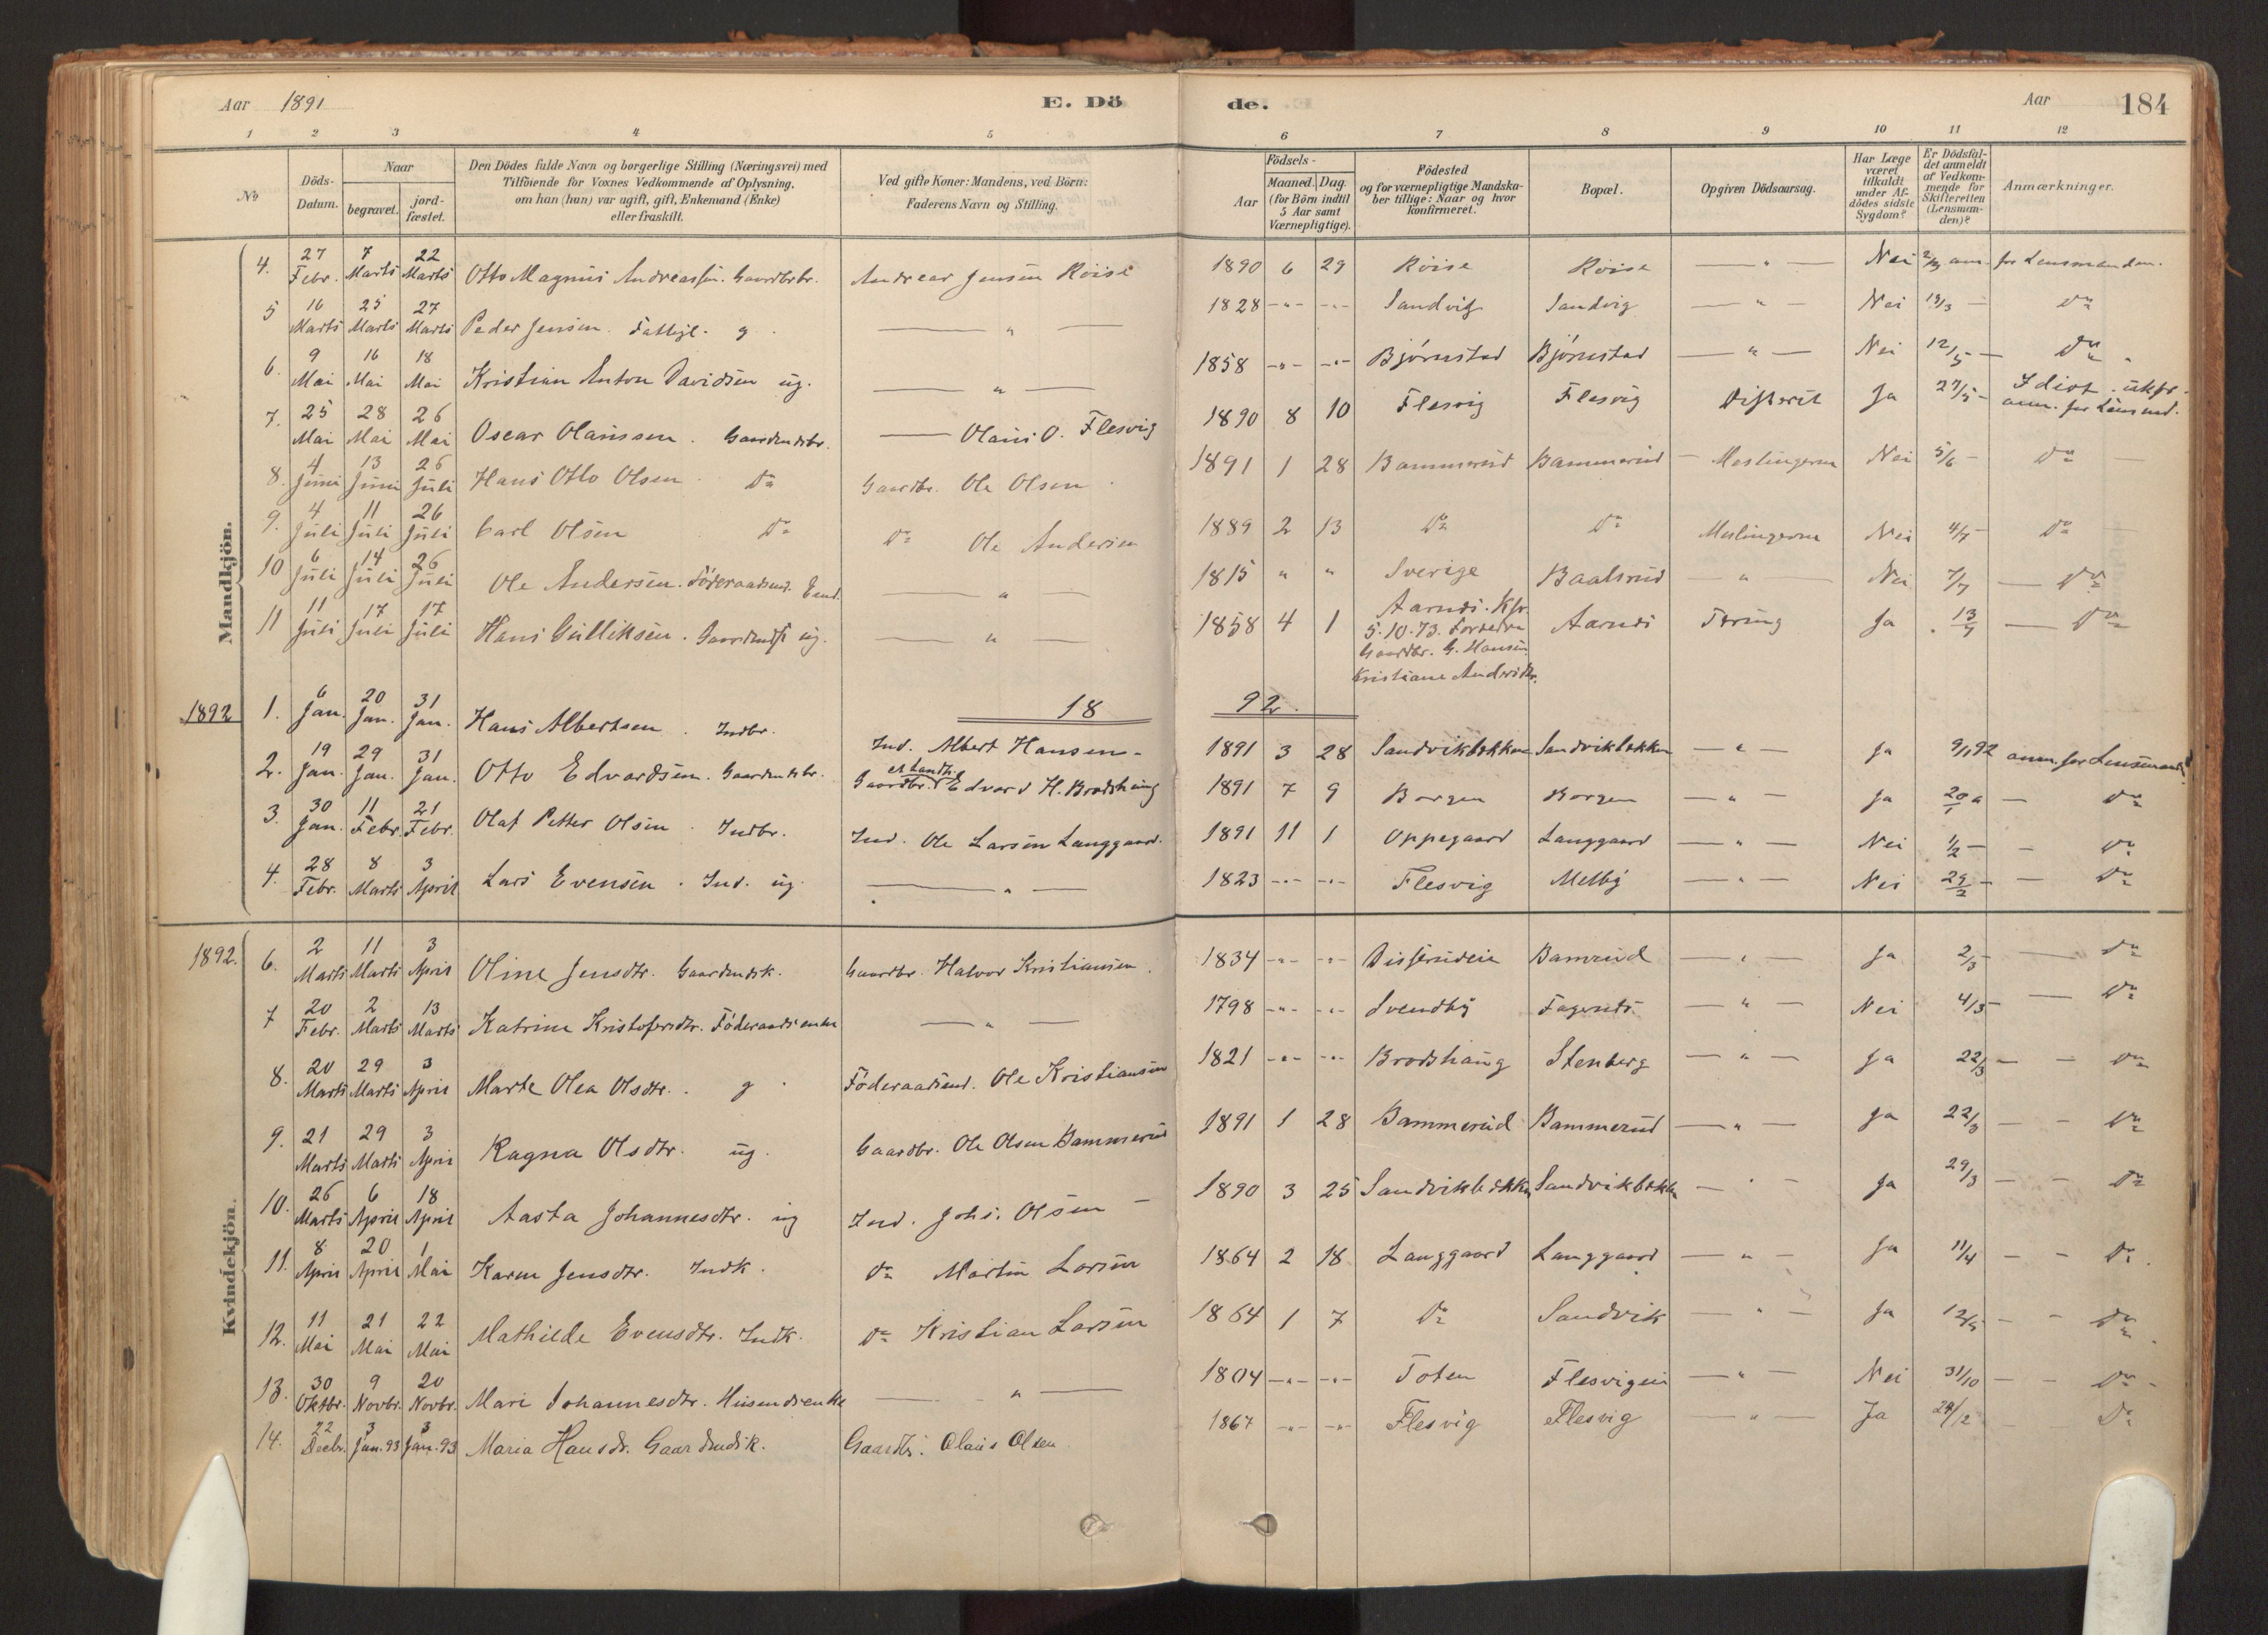 Aar 1891 E. Dö de. Aar 184
1 2 3 4 5 6 7 8 9 10 11 12
No
Döds-Datum.
Naar
begravet. jord-fæstet.
Den Dödes fulde Navn og borgerlige Stilling (Næringsvei) med
Tilföiende for Voxnes Vedkommende af Oplysning,
om han (hun) var ugift, gift, Enkemand (Enke)
eller fraskilt.
Ved gifte Koner: Mandens, ved Börn:
Faderens Navn og Stilling.
Aar
Födsels-
Maaned. Dag.
(for Börn indtil
5 Aar samt
Værnepligtige).
Födested
og for værnepligtige Mandska-
ber tillige: Naar og hvor
konfirmeret.
Bopæl.
Opgiven Dödsaarsag.
Har Læge
været
tilkaldt
under Af-
dödes sidste
Sygdom?
Er Dödsfal-
det anmeldt
af Vedkom-
mende for
Skifteretten
(Lensman-
den)?
Anmærkninger.
Mandkjön.
4. 27 Febr. 7 Marts 22 Marts Otto Magnus Andreassen. Gaardbrbr. Andreas Jensen Röise 1890 6 29 Röise Röise — " — Nei 2/3 anm. for Lensmanden.
5 16 Marts 25 Marts 27 Marts Peder Jensen. Fattigl. g. — " — 1828 -"- -"- Sandvig Sandvig — " — Nei 19/3 — Do
6. 9 Mai 16 Mai 18 Mai Kristian Anton Davidsen ug. — " — 1858 -"- -"- Björnstad Björnstad — " — Nei 12/5 — Do
Idiot. ukfr.
7. 25 Mai 28 Mai 26 Mai Oscar Olaussen. Gaardmdsbr. — Olaus O. Flesvig 1890 8 10 Flesvig Flesvig Difterit Ja 27/5 - anm. for Lensmd.
8. 4 Juni 13 Juni 26 Juli Hans Otto Olsen. Do Gaardbr. Ole Olsen. 1891 1 28 Bammerud Bammerud — Meslingerne Nei 5/6 - Do —
9. 4 Juli 11 Juli 26 Juli Carl Olsen Do Do Ole Andersen 1889 2 13 Do Do Meslingerne Nei 4/7 - Do —
10 6 Juli 14 Juli 26 Juli Ole Andersen. Föderaadsmd. Emd. — " — 1815 " " Sverige Baalsrud — " — Nei 7/7 — Do
11 11 Juli 17 Juli 17 Juli Hans Gulliksen. Gaardmds ug. — " — 1858 4 1 Aarnds. Kfr.
5.10.73. Forældre
Gaardbr. G. Hansen
Kristiane Andersdtr. Aarnds Tæring Ja 13/7 — Do
18 92.
1892 1. 6 Jan. 20 Jan. 31 Jan. Hans Albertsen. Indbr. Ind. Albert Hansen - 1891 3 28 Sandvikbækken Sandvikbækken — " — Ja 9/1 92 anm. for Lensmand.
2. 19 Jan. 29 Jan. 31 Jan. Otto Edvardsen. Gaardmdsbr. Gaardbr. Edvard H. Brodshaug 1891 7 9 Borgen Borgen — " — Ja — Do
3. 30 Jan. 11 Febr. 21 Febr. Olaf Petter Olsen. Indbr. Ind. Ole Larsen Langgaard. 1891 11 1 Oppegaard Langgaard — " — Nei 1/2 — — Do
4. 28 Febr. 8 Marts 3 April Lars Evensen. Ind. ug. — " — 1823 -"- -"- Flesvig Melby — " — Nei 29/2 — — Do
Kvindekjön.
1892. 6. 2 Marts 11 Marts 3 April Oline Jensdtr. Gaardmdsk. Gaardbr. Halvor Kristiansen. 1834 -"- -"- Bamrud — " — Ja 2/3 — — Do
7 20 Febr. 2 Marts 13 Marts Katrine Kristofersdtr. Föderaadsenke — " — 1798 -"- -"- Svendby — " — Nei 4/3 — — Do
8. 20 Marts 29 Marts 3 April Marte Olea Olsdtr. g. Föderaadsmd. Ole Kristiansen 1821 -"- -"- Brodshaug Stenberg — " — Ja 22/3 — — Do
9. 21 Marts 29 Marts 3 April Ragna Olsdtr. ug. Gaardbr. Ole Olsen Bammerud 1891 1 28 Bammerud Bammerud — " — Ja 22/3 — — Do
10. 26 Marts 6 April 18 April Aasta Johannesdtr. ug Ind. Johs. Olsen — 1890 3 25 Sandvikbækken Sandvikbækken — " — Ja 29/3 — — Do
11. 8 April 20 April 1 Mai Karen Jensdtr. Indk. Do Martin Larsen 1864 2 18 Langgaard Langgaard — " — Ja 11/4 — — Do.
12. 11 Mai 21 Mai 22 Mai Mathilde Evensdtr. Indk. Do Kristian Larsen 1864 1 7 Do Sandvik — " — Ja 12/5 — — Do.
13. 30 Oktbr. 9 Novbr. 20 Novbr. Mari Johannesdtr. Husmdsenke — " — 1804 -"- -"- Toten Flesvigeie — " — Nei 31/10 — — Do -
14. 22 Decbr. 3 Jan. 93 3 Jan. 93 Maria Hansdr. Gaardmdsk. Gaardbr. Olaus Olsen 1867 -"- -"- Flesvig Flesvig — " — Ja 24/12 — Do